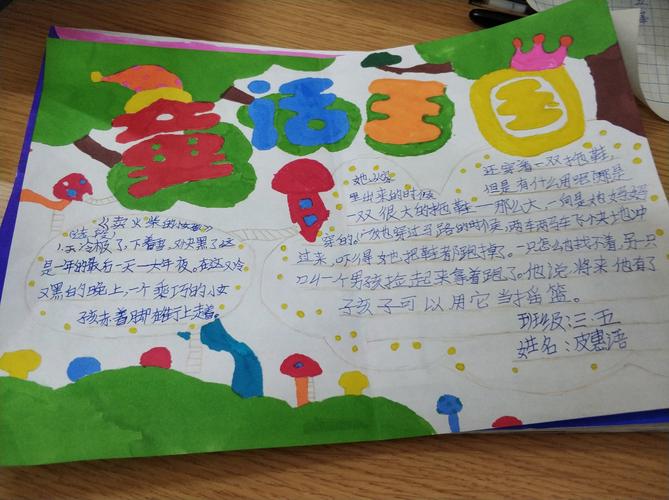 童话王国
《卖火柴的小女孩》
(选段)
天冷极了,下着雪,又快黑了。这
是一年的最后一天——大年夜。在这又冷
又黑的晚上,一个乖巧的小女
孩赤着脚在街上走着。
她从家
里出来的时候
还穿着一双拖鞋,
但是有什么用呢?那是
一双很大的拖鞋——那么大,一向是她妈妈
穿的。她穿过马路的时候,两车两马车飞冲
过来,吓得她把鞋都跑掉了。一只怎么也找不着,另一只
叫一个男孩捡起来拿着跑了。他说将来他有了
孩子可以用它当摇篮。
班级:三.五
姓名:皮惠语